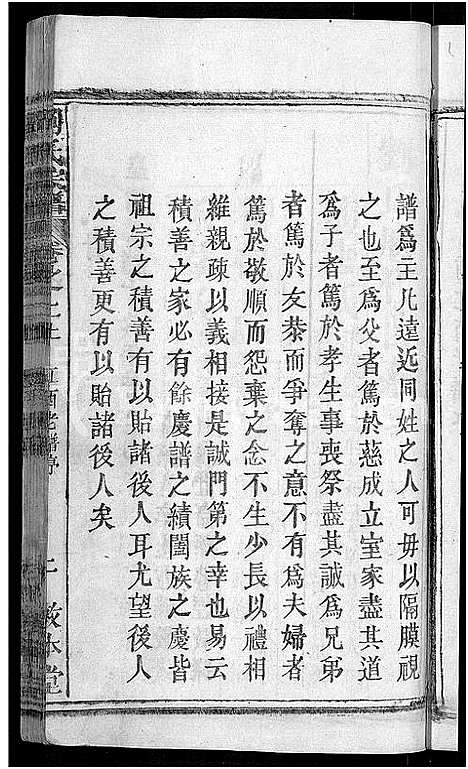 譜爲主凡遠近同姓之人可毋以隔膜視
之也至爲父者篤於慈成立室家盡其道
爲子者篤於孝生事喪祭盡其誠爲兄弟
者篤於友恭而爭奪之意不有爲夫婦者
篤於敬順而怨棄之念不生少長以禮相
維親疎以義相接是誠門第之幸也易云
積善之家必有餘慶譜之績闔族之慶皆
祖宗之積善有以貽諸後人耳尤望後人
之積善更有以貽諸後人矣